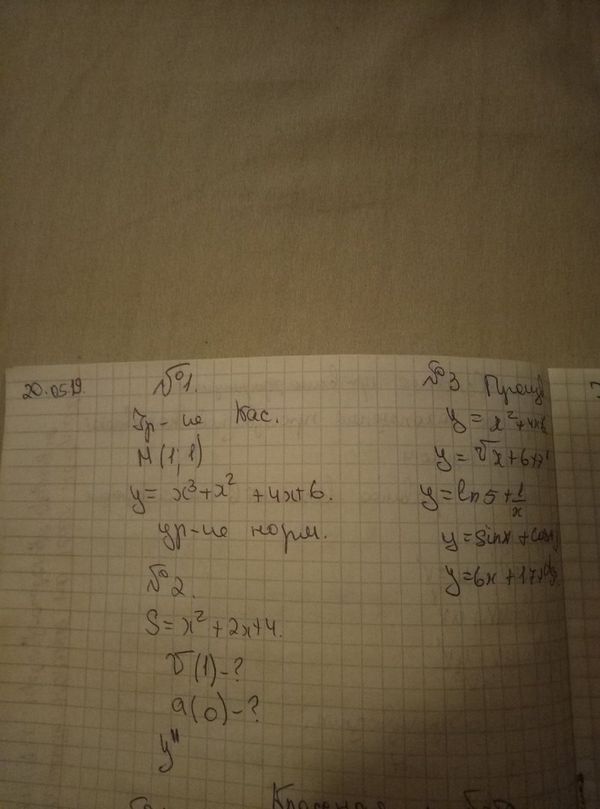 20.05.19.
№1.
Ур-ие Кас.
M(1;1)
y = x³+x² +4x+6.
ур-ие норм.
№2.
S=x²+2x+4.
V(1)-?
a(0)-?
y"
№3
y= x²+4x
y= √x+6
y=ln5+1/x
y=sinx+cos
y=6x+17